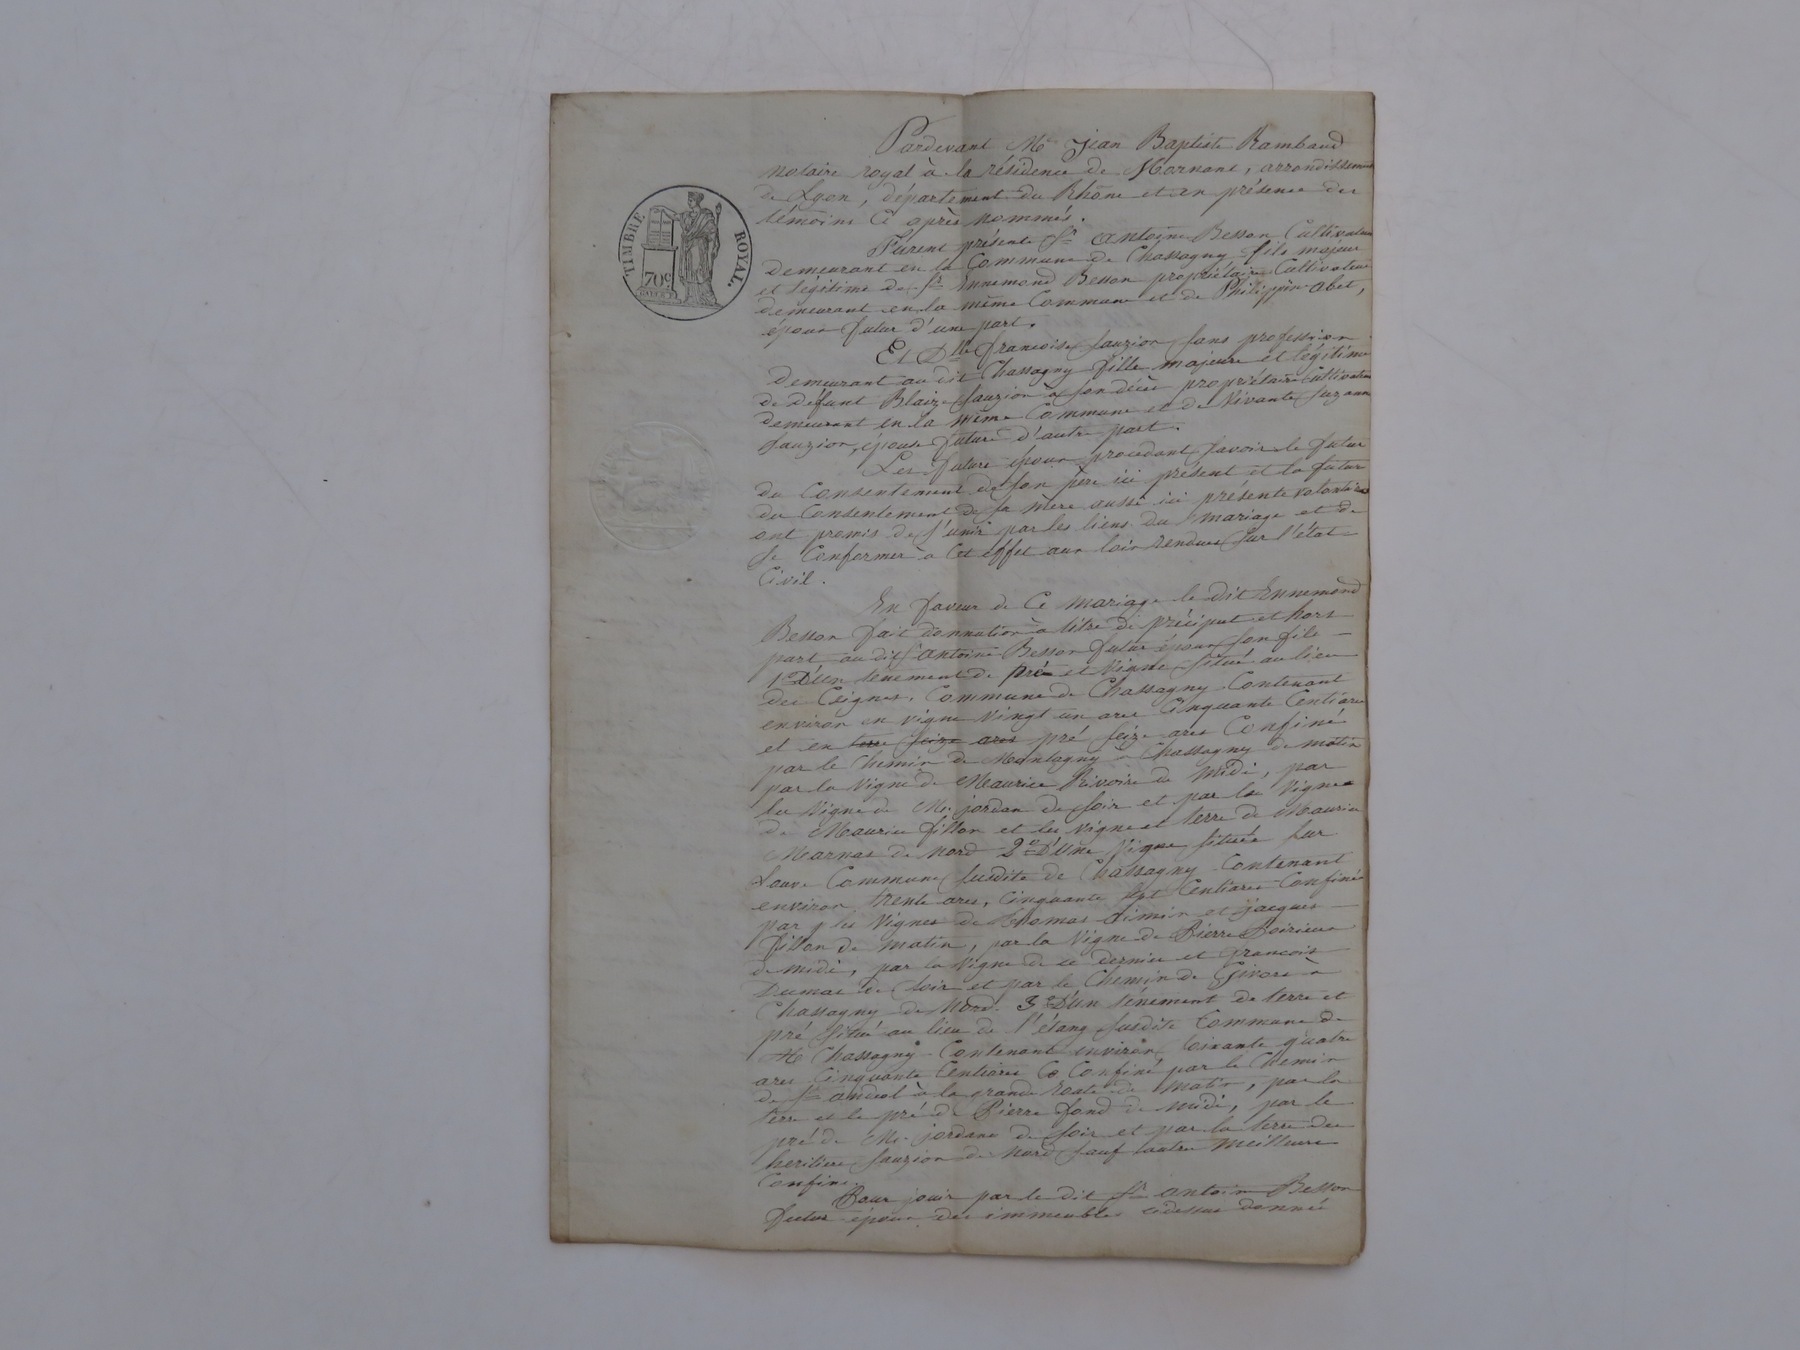 TIMBRE ROYAL.
70c
Pardevant Me Jean Baptiste Rambaud
notaire royal à la résidence de Mornant, arrondissement
de Lyon, département du Rhône et en présence des
témoins Ci après nommés.
Furent présents Sr antoine Besson Cultivateur
demeurant en la Commune de Chassagny fils majeur
et légitime de Sr Ennemond Besson propriétaire Cultivateur
demeurant en la même Commune et de Philippine abet,
époux futur d'une part.
Et Dlle françoise fauzion sans profession
demeurant au dit Chassagny fille majeure et légitime
de défunt Blaize fauzion à son décès propriétaire Cultivateur
demeurant en la même Commune et de vivante Suzanne
fauzion, épouse future d'autre part.
Les futurs époux procédant savoir le futur
du Consentement de son père ici présent et la future
du Consentement de sa mère aussi ici présente volontaires
ont promis de s'unir par les liens du mariage et de
se Conformer à Cet effet aux loix rendues sur l'état
Civil.
En faveur de Ce mariage le dit Ennemond
Besson fait donnation à titre de préciput et hors
part au dit Sr antoine Besson futur époux son fils
1° D'un tenement de pré et vigne situé au lieu
des Ceignes, Commune de Chassagny Contenant
environ en vigne vingt un ares Cinquante Centiares
et en terre seize ares pré seize ares Confiné
par le Chemin de Montagny à Chassagny de matin
par la vigne de Maurice Rivoire de midi, par
la vigne de Mr jordan de soir et par la vigne
de Maurice fillon et les vigne et terre de Maurice
Marnas de nord 2° D'Une vigne située sur
Louve Commune susdite de Chassagny Contenant
environ trente ares, Cinquante sept Centiares Confinée
par les vignes de thomas et jacques
fillon de matin, par la vigne de Pierre Poirieux
de midi, par la vigne de ce dernier et françois
Dumas de soir et par le Chemin de Givors à
Chassagny de Nord. 3° D'un tènement de terre et
pré situé au lieu de l'étang susdite Commune de
Chassagny Contenant environ soixante quatre
ares Cinquante Centiares Confiné par le Chemin
de St andéol à la grande Route de matin, par la
terre et le pré de Pierre fond de midi, par le
pré de Mr jordan de soir et par la terre des
heritiers fauzion de Nord sauf autre meilleure
Confins.
Pour jouir par le dit Sr antoine Besson
futur époux des immeubles cidessus donnés